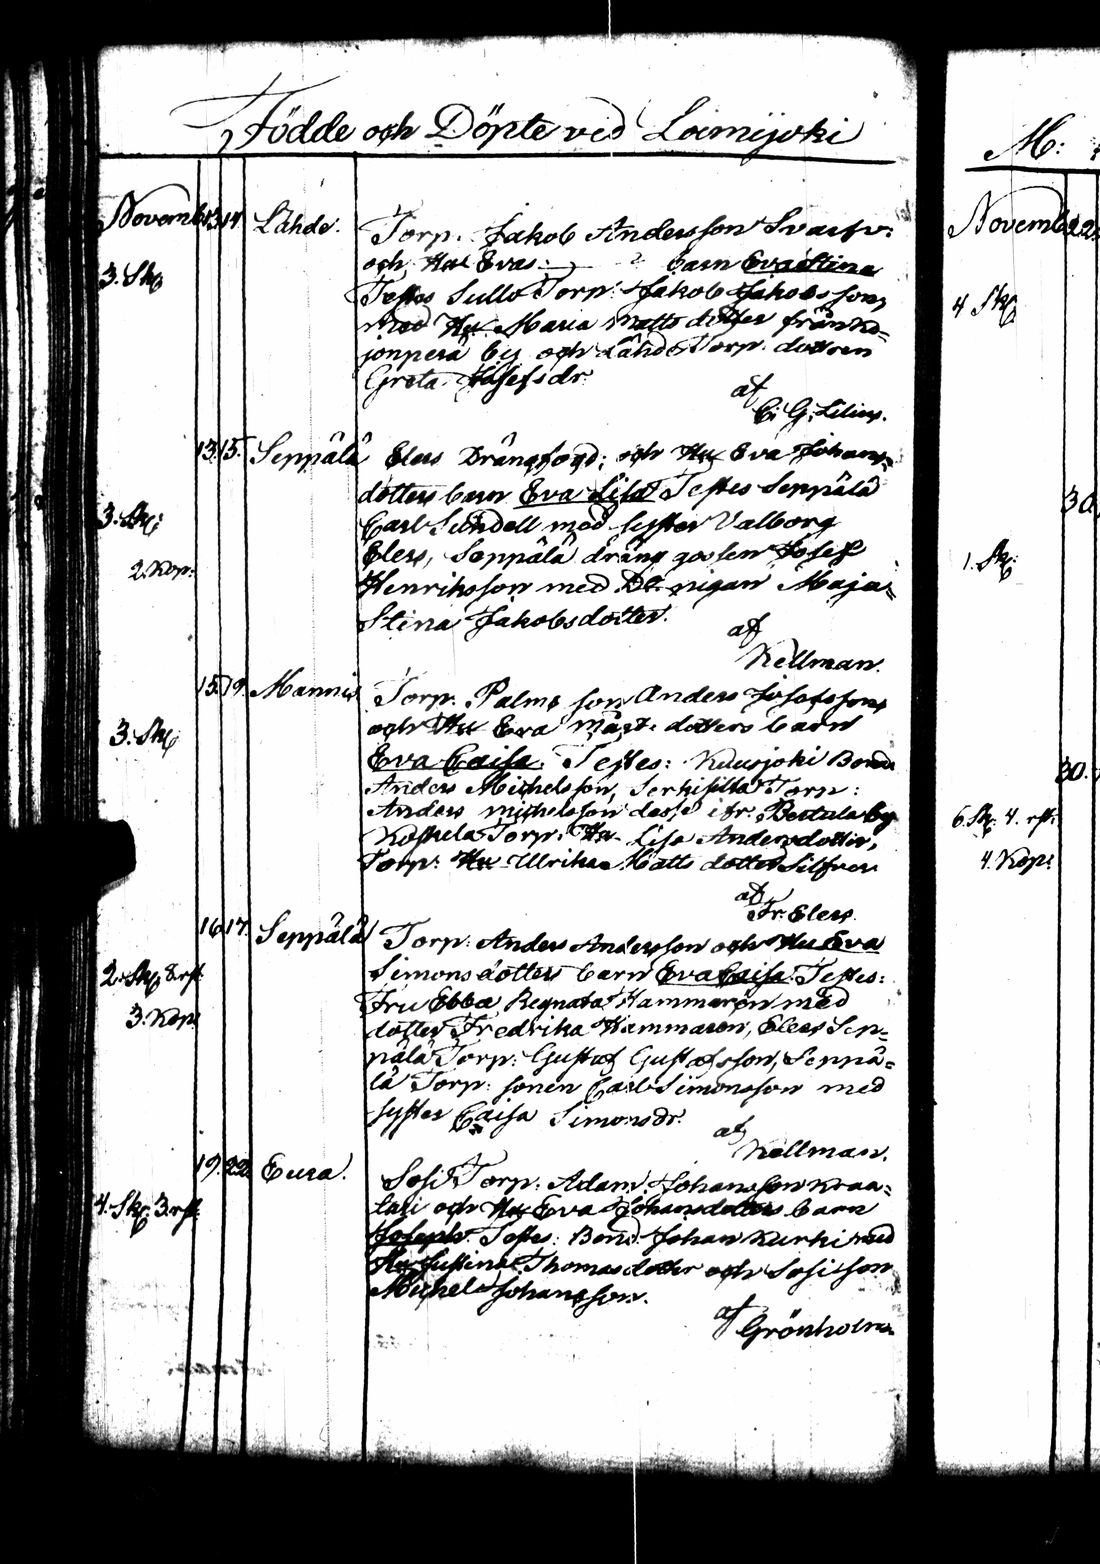 Födde och Döpte ved Loimijoki
Novemb. 13. 14. Lähde. Torp. Jakob Andersson Svarfv:
och Hu Evas: barn Eva Stina
3. Sk Testes Sullo Torp: Jakob Jakobsson,
med Hu Maria Mattsdotter från Ko=
jonperä by och Lähde Torp. dottren
Greta Josefsdr.
af
C. G. Lilius.
13. 15. Seppälä Elers Drängfogd: och Hu Eva Johans=
dotters barn Eva Lisa Testes Seppälä
3. Sk: Carl Sundell med syster Valborg
2. Kop: Elers, Seppälä dräng gossen Josef
Henriksson med pigan Maja=
Stina Jakobsdotter.
af
Kellman.
15. 19. Mannis Torp. Palms son Anders Josefsson
och Hu Eva Mårt. dotters barn
3. Sk Eva Caisa. Testes: Kuusjoki Bond
Anders Michelsson, Torp:
Anders Michelsson by
Koskela Torp. Hu Lisa Andersdotter,
Torp. Hu Ulrika Matts dotter Silfver
af
Fr. Elers.
16. 17. Seppälä Torp. Anders Andersson och Hu Eva
2. Sk 8 rst Simonsdotters barn Eva Caisa Testes:
3. Kop: Fru Ebba Regnata Hammaren med
dotter Fredrika Hammaren, Elers Sep=
pälä Torp: Gustaf Gustafsson, Seppä=
lä Torp: sonen Carl Simonsson med
syster Caisa Simonsdr.
af
Kellman.
19. 22. Eura. Sofi Torp. Adam Johansson Kraa=
4. Sk 3 rst tari och Hu Eva Johansdotters barn
Joseph. Testes: Bond. Johan Kurki med
Hu Justina Thomasdotter och son
Michel Johansson.
af Grönholm
M:
Novemb 22
4 Sk
30.
1. Sk:
30.
6. Sk: 4. rst:
4. Kop: